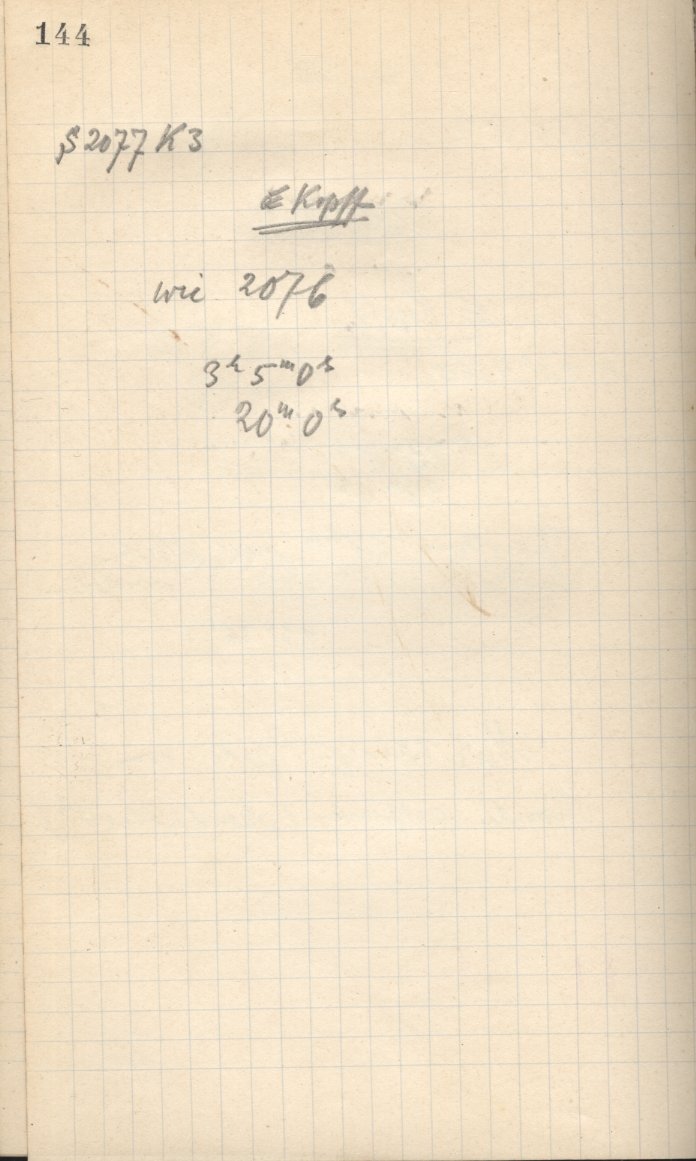 144
S 2077 K3
Kopff
wie 2076
3ʰ 5ᵐ 0ˢ
20ᵐ 0ˢ